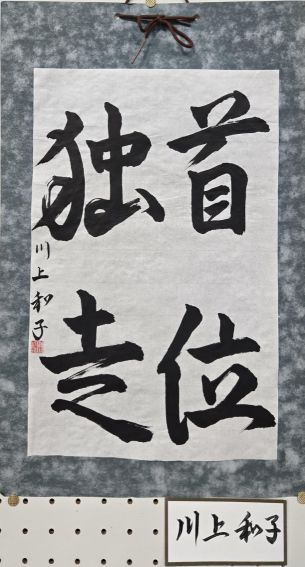 首位
独走
川上和子
川上和子